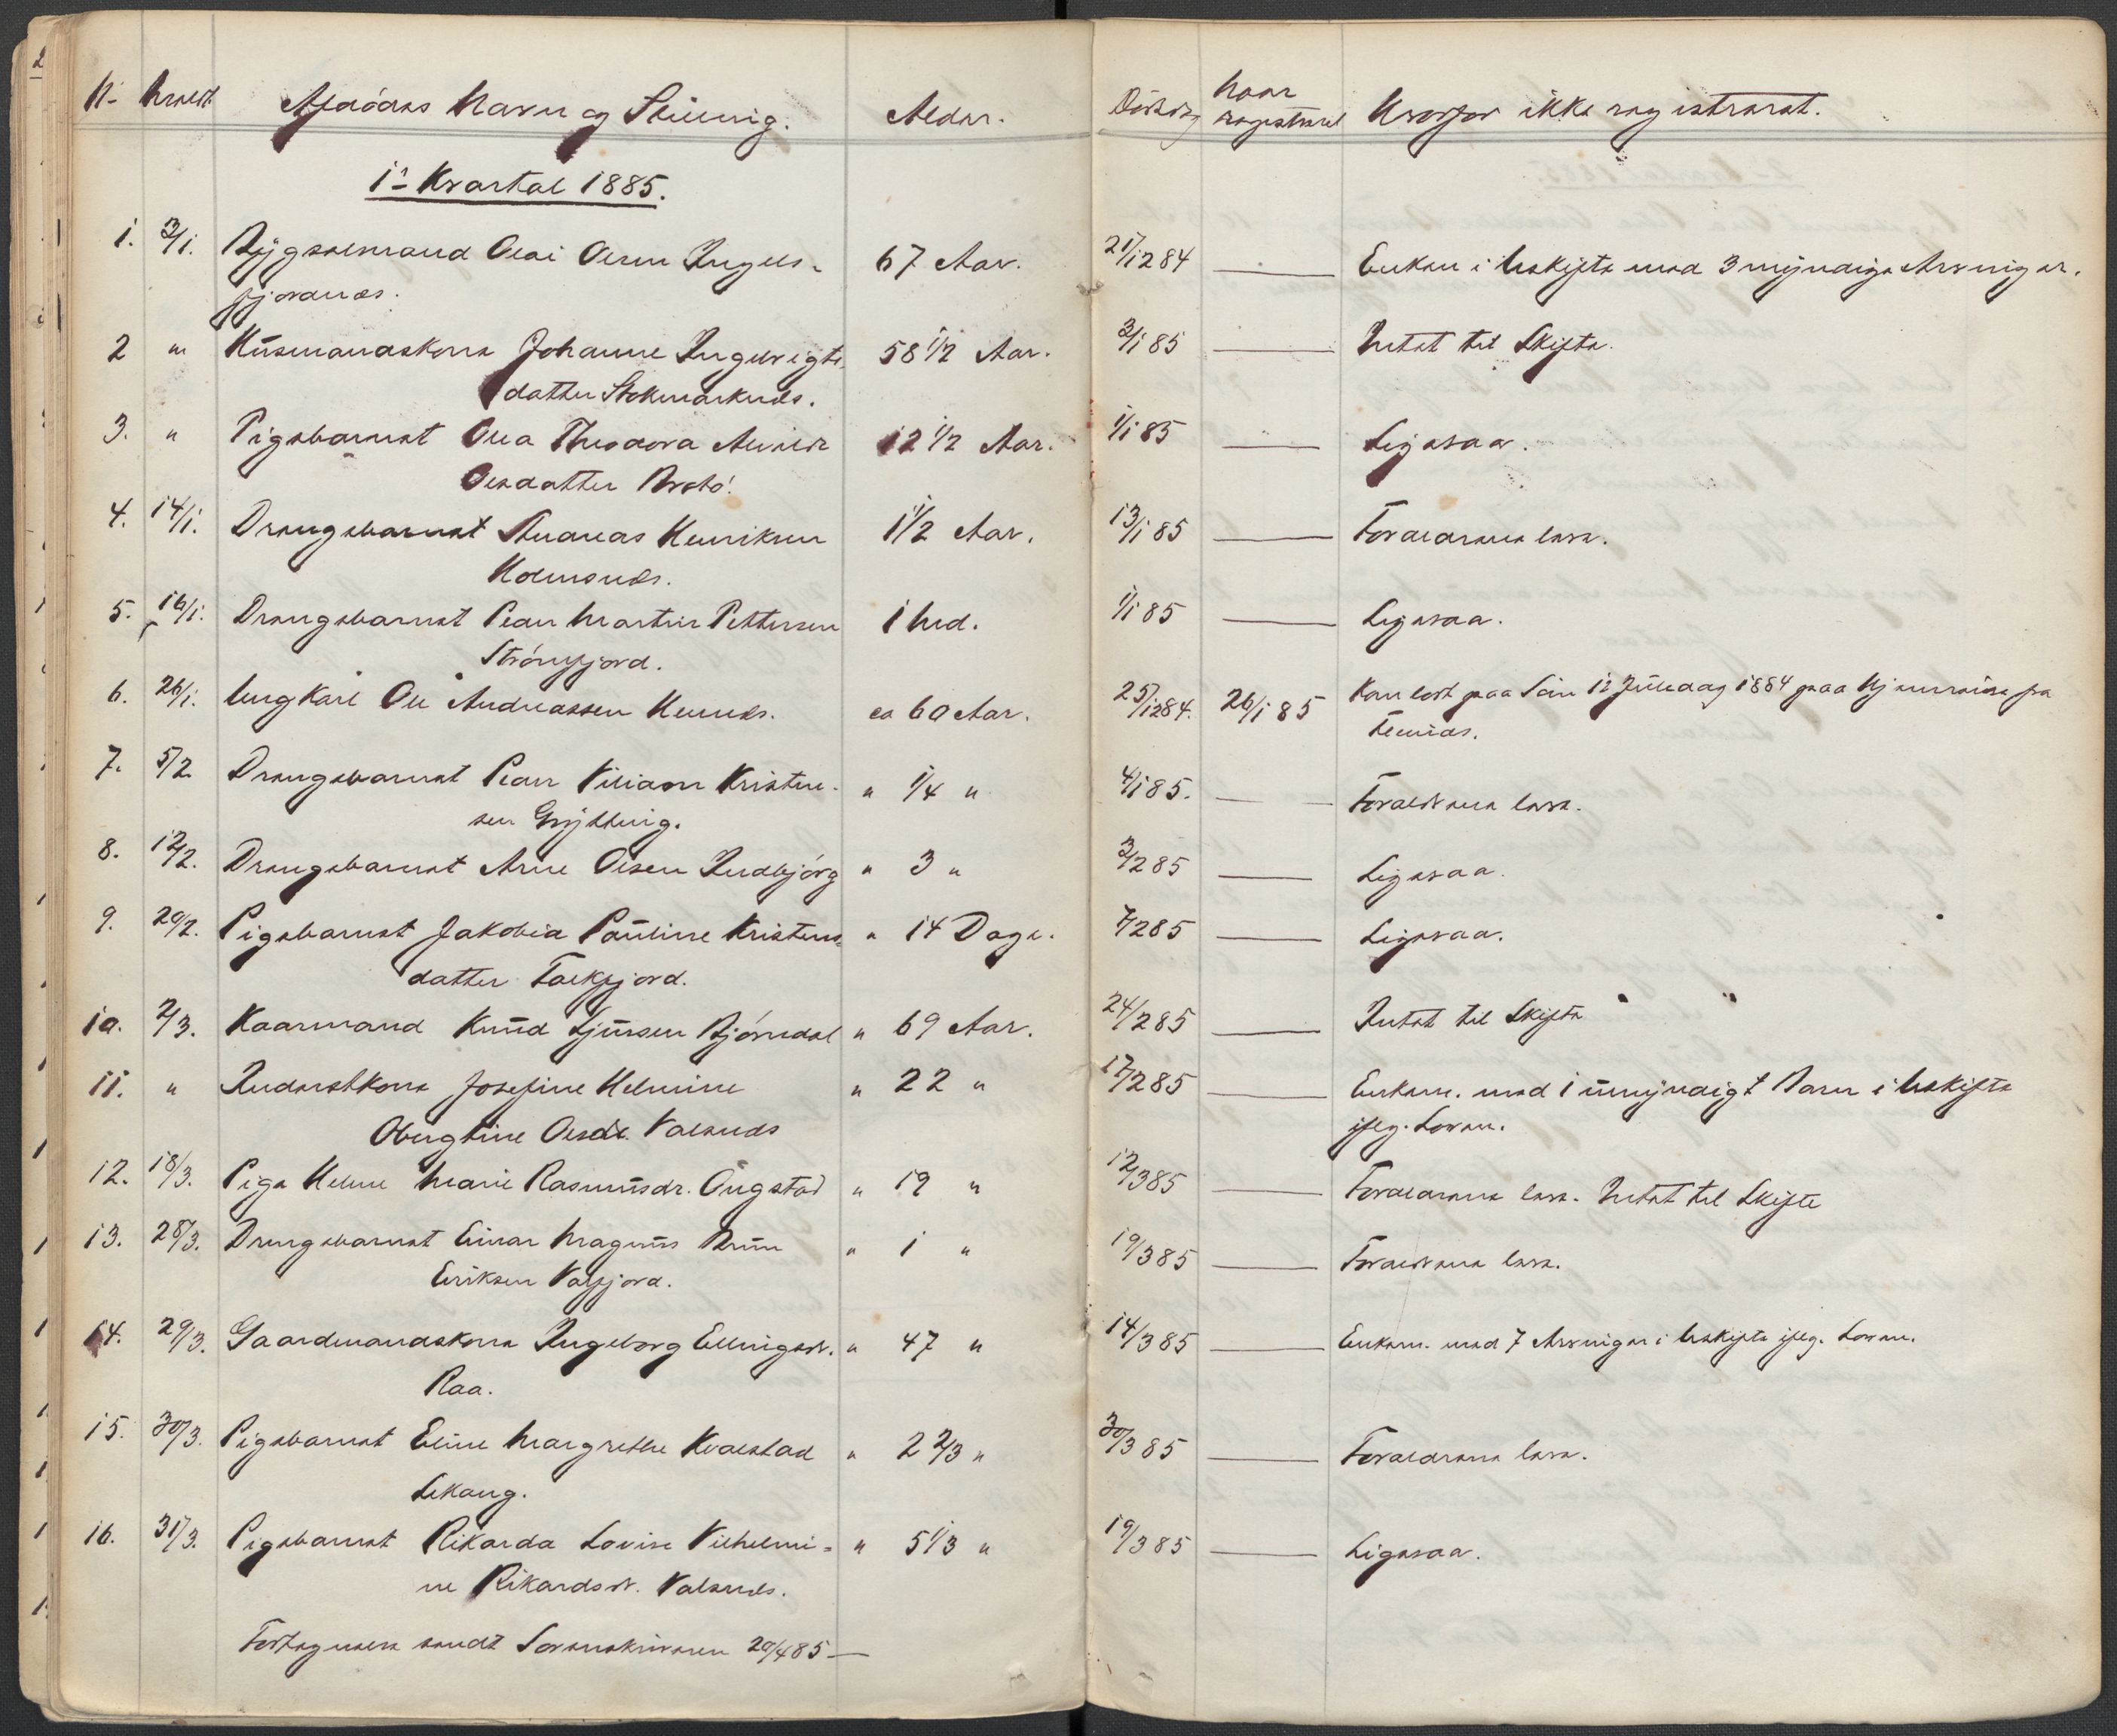 N. Anmeldt Afdødes Navn og Stilling. Alder. Dödsdag Naar registreret Hvorfor ikke registreret.
1ste Kvartal 1885.
1. 3/1. Bygselmand Olai Olsen Ingels- 67 Aar. 21/12 84 — Enken i Uskifte med 3 myndige Arvinger.
fjordnæs.
2 " Husmandskone Johanne Ingebrigts- 58 1/2 Aar. 3/1 85 — Intet til Skifte.
datter Stokmarknæs.
3. " Pigebarnet Olea Theodora 12 1/2 Aar. 1/1 85 — Ligesaa.
Olesdatter Brotö.
4. 14/1. Drengebarnet Andreas Henriksen 1 1/2 Aar. 13/1 85 — Forældrene leve.
Holmsnæs.
5. 16/1. Drengebarnet Peder Martin Pettersen 1 Md. 1/1 85 — Ligesaa.
Strömfjord.
6. 26/1. Ungkarl Ole Andreassen Hennes. ca 60 Aar. 25/12 84. 26/1 85 Kom bort paa Söen 1ste Juledag 1884 paa Hjemreise fra
7. 5/2. Drengebarnet Peder Viliam Kristen- " 1/4 " 4/1 85. — Forældrene leve.
sen Grytting.
8. 12/2. Drengebarnet Arne Olsen Indbjörg " 3 " 3/2 85 — Ligesaa.
9. 20/2. Pigebarnet Jakobia Pauline Kristens- " 14 Dage. 7/2 85 — Ligesaa.
datter Falkfjord.
10. 2/3. Kaarmand Knud Sjursen Björndal " 69 Aar. 24/2 85 — Intet til Skifte
11. " Inderstkone Josefine Helmine " 22 " 17/2 85 — Enkem. med 1 umyndigt Barn i Uskifte
Obergtine Olsdtr. Valsnæs ifølg. Loven.
12. 18/3. Pige Helene Marie Rasmusdr. Öngstad " 19 " 12/3 85 — Forældrene leve. Intet til Skifte
13. 28/3. Drengebarnet Einar Magnus Bruun " 1 " 19/3 85 — Forældrene leve.
Eriksen Valfjord.
14. 29/3. Gaardmandskone Ingeborg Ellingsdr. " 47 " 14/3 85 — Enkem. med 7 Arvinger i Uskifte ifølg. Loven.
Raa.
15. 30/3. Pigebarnet Eline Margrethe Kvalstad " 2 2/3 " 30/3 85 — Forældrene leve.
Lekang.
16. 31/3. Pigebarnet Rikarda Lovise Vilhelmi- " 5 1/3 " 19/3 85 — Ligesaa.
ne Rikardsdr. Valsnæs.
Fortegnelse sendt Sorenskriveren 20/4 85 —